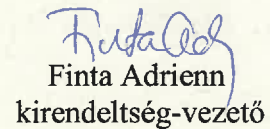 Finta Adrienn
kirendeltség-vezető